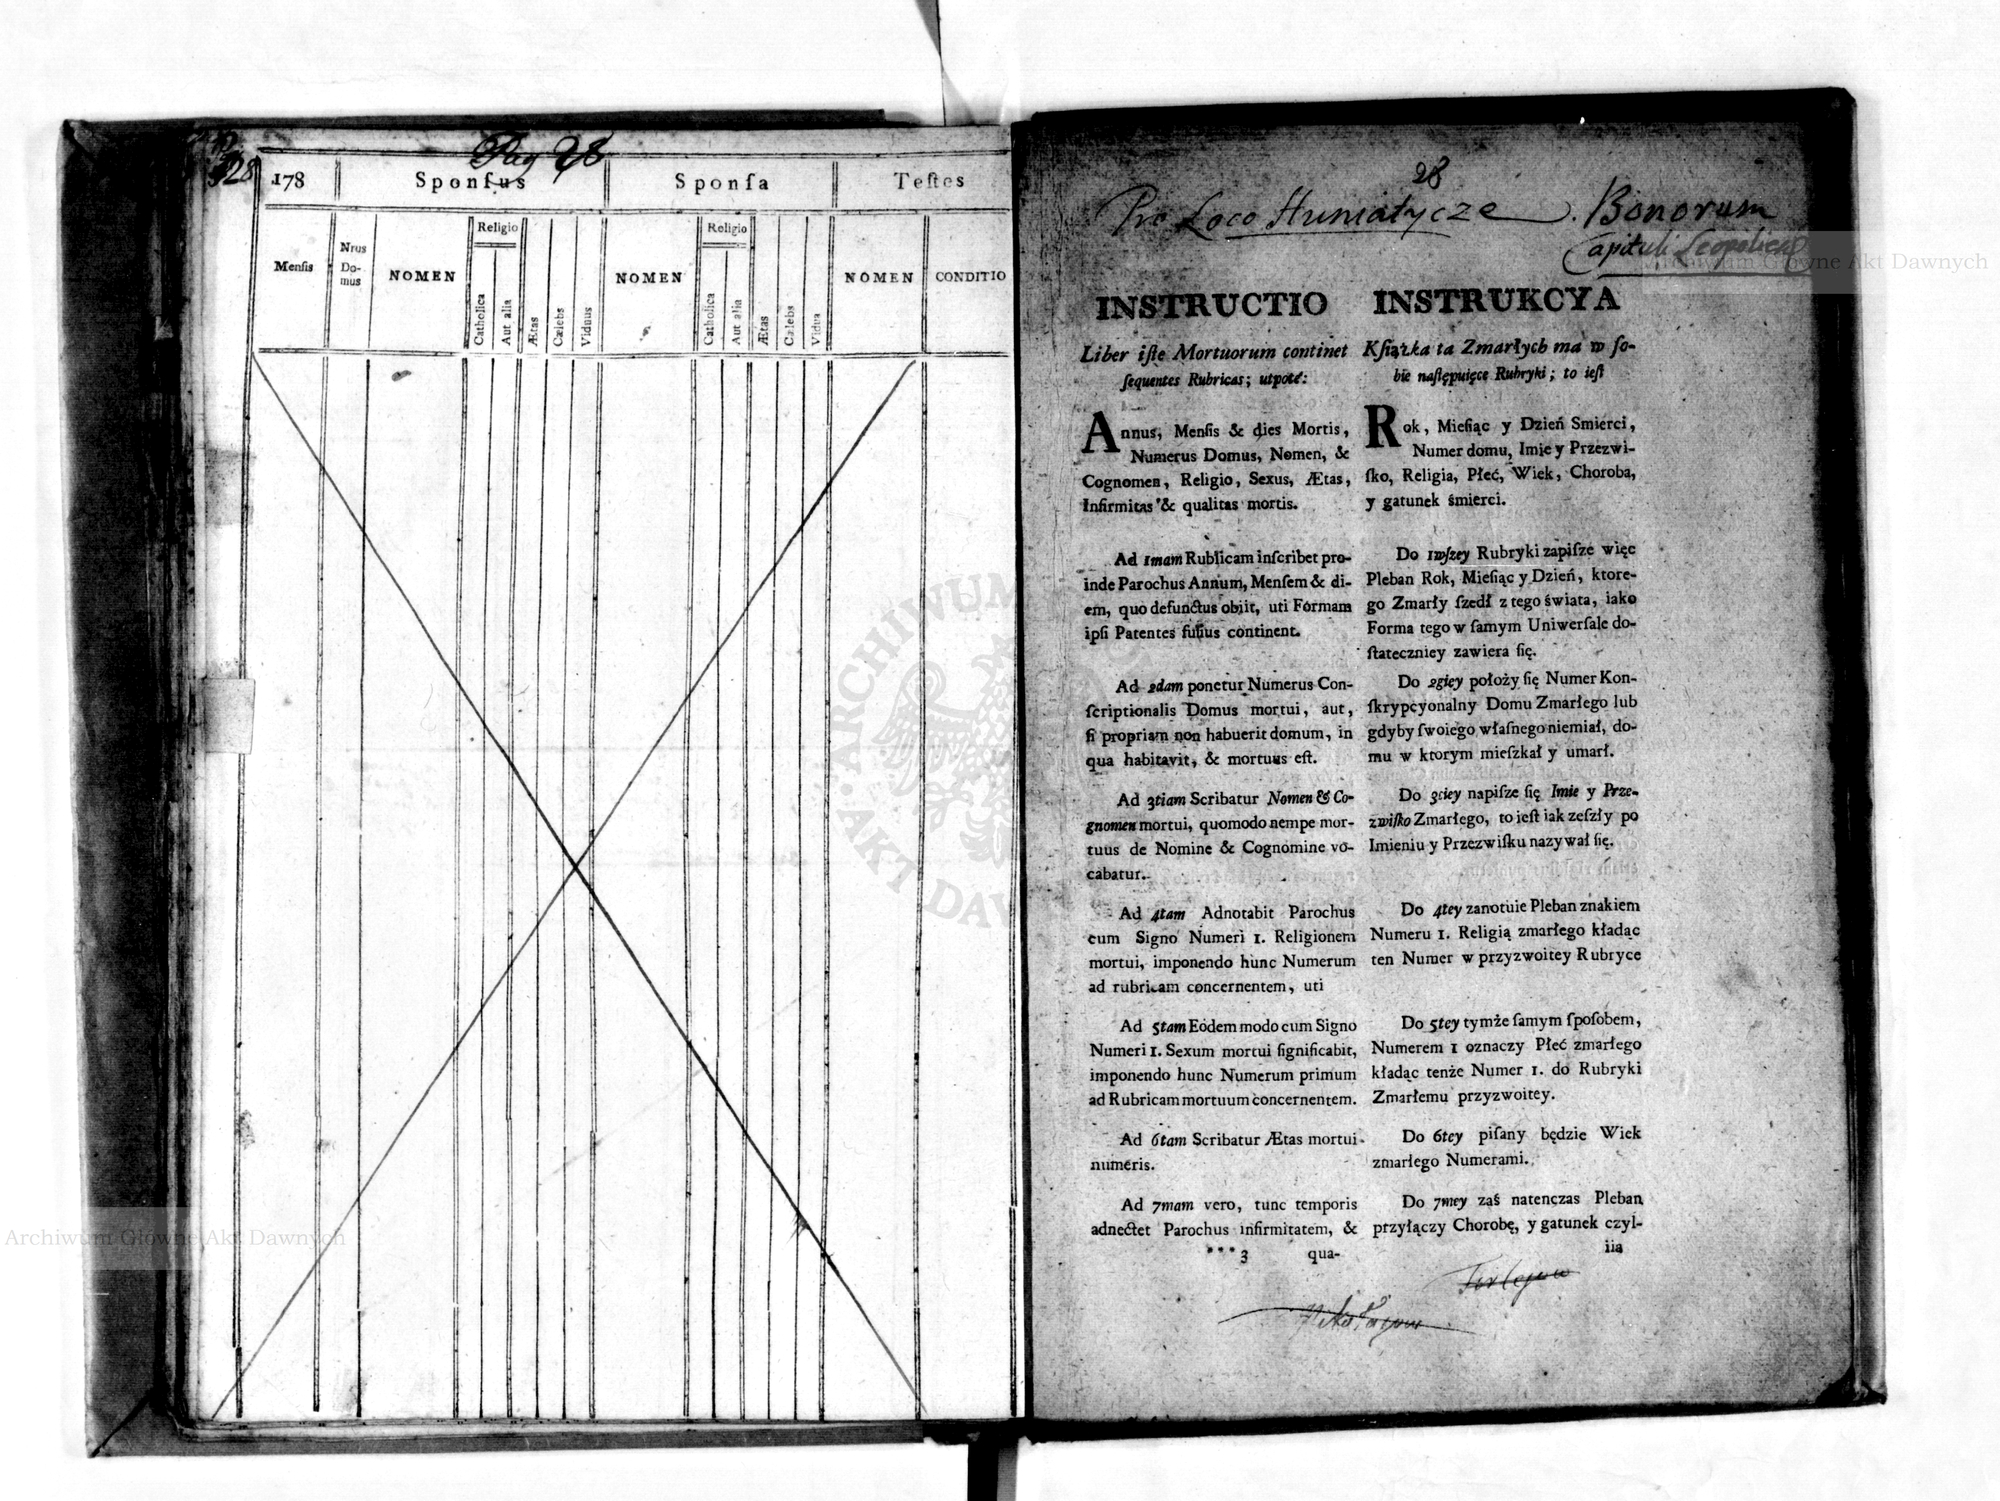 28
Pag 28
178
Sponſus
Sponſa
Teſtes
Menſis
Nrus Do-mus
NOMEN
Religio
Catholica
Aut alia
Ætas
Cælebs
Viduus
NOMEN
Religio
Catholica
Aut alia
Ætas
Cælebs
Vidua
NOMEN
CONDITIO
28
Pro Loco Humiatycze . Bonorum
Capituli Leopolien
INSTRUCTIO
Liber iſte Mortuorum continet
ſequentes Rubricas; utpote:
Annus, Menſis & dies Mortis,
Numerus Domus, Nomen, &
Cognomen, Religio, Sexus, Ætas,
Infirmitas & qualitas mortis.
Ad 1mam Rublicam inſcribet pro-
inde Parochus Annum, Menſem & di-
em, quo defunctus obiit, uti Formam
ipſi Patentes fuſius continent.
Ad 2dam ponetur Numerus Con-
ſcriptionalis Domus mortui, aut,
ſi propriam non habuerit domum, in
qua habitavit, & mortuus eſt.
Ad 3tiam Scribatur Nomen & Co-
gnomen mortui, quomodo nempe mor-
tuus de Nomine & Cognomine vo-
cabatur.
Ad 4tam Adnotabit Parochus
cum Signo Numeri 1. Religionem
mortui, imponendo hunc Numerum
ad rubricam concernentem, uti
Ad 5tam Eodem modo cum Signo
Numeri 1. Sexum mortui ſignificabit,
imponendo hunc Numerum primum
ad Rubricam mortuum concernentem.
Ad 6tam Scribatur Ætas mortui
numeris.
Ad 7mam vero, tunc temporis
adnectet Parochus infirmitatem, &
*** 3 qua-
INSTRUKCYA
Kſiążka ta Zmarłych ma w ſo-
bie naſtępuięce Rubryki; to ieſt
Rok, Mieſiąc y Dzień Smierci,
Numer domu, Imie y Przezwi-
ſko, Religia, Płeć, Wiek, Choroba,
y gatunek śmierci.
Do 1wſzey Rubryki zapiſze więc
Pleban Rok, Mieſiąc y Dzień, ktore-
go Zmarły ſzedł z tego świata, iako
Forma tego w ſamym Uniwerſale do-
ſtateczniey zawiera się.
Do 2giey położy ſię Numer Kon-
ſkrypcyonalny Domu Zmarłego lub
gdyby ſwoiego włafnego niemiał, do-
mu w ktorym mieſzkał y umarł.
Do 3ciey napiſze ſię Imie y Prze-
zwiſko Zmarłego, to ieſt iak zeſzły po
Imieniu y Przezwiſku nazywał ſię.
Do 4tey zanotuie Pleban znakiem
Numeru 1. Religią zmarłego kładąc
ten Numer w przyzwoitey Rubryce
Do 5tey tymże ſamym ſpoſobem,
Numerem 1 oznaczy Płeć zmarłego
kładąc tenże Numer 1. do Rubryki
Zmarłemu przyzwoitey.
Do 6tey piſany będzie Wiek
zmarłego Numerami.
Do 7mey zaś natenczas Pleban
przyłączy Chorobę, y gatunek czyl-
iia
Archiwum Główne Akt Dawnych
Archiwum Główne Akt Dawnych
ARCHIWUM
AKT DAW